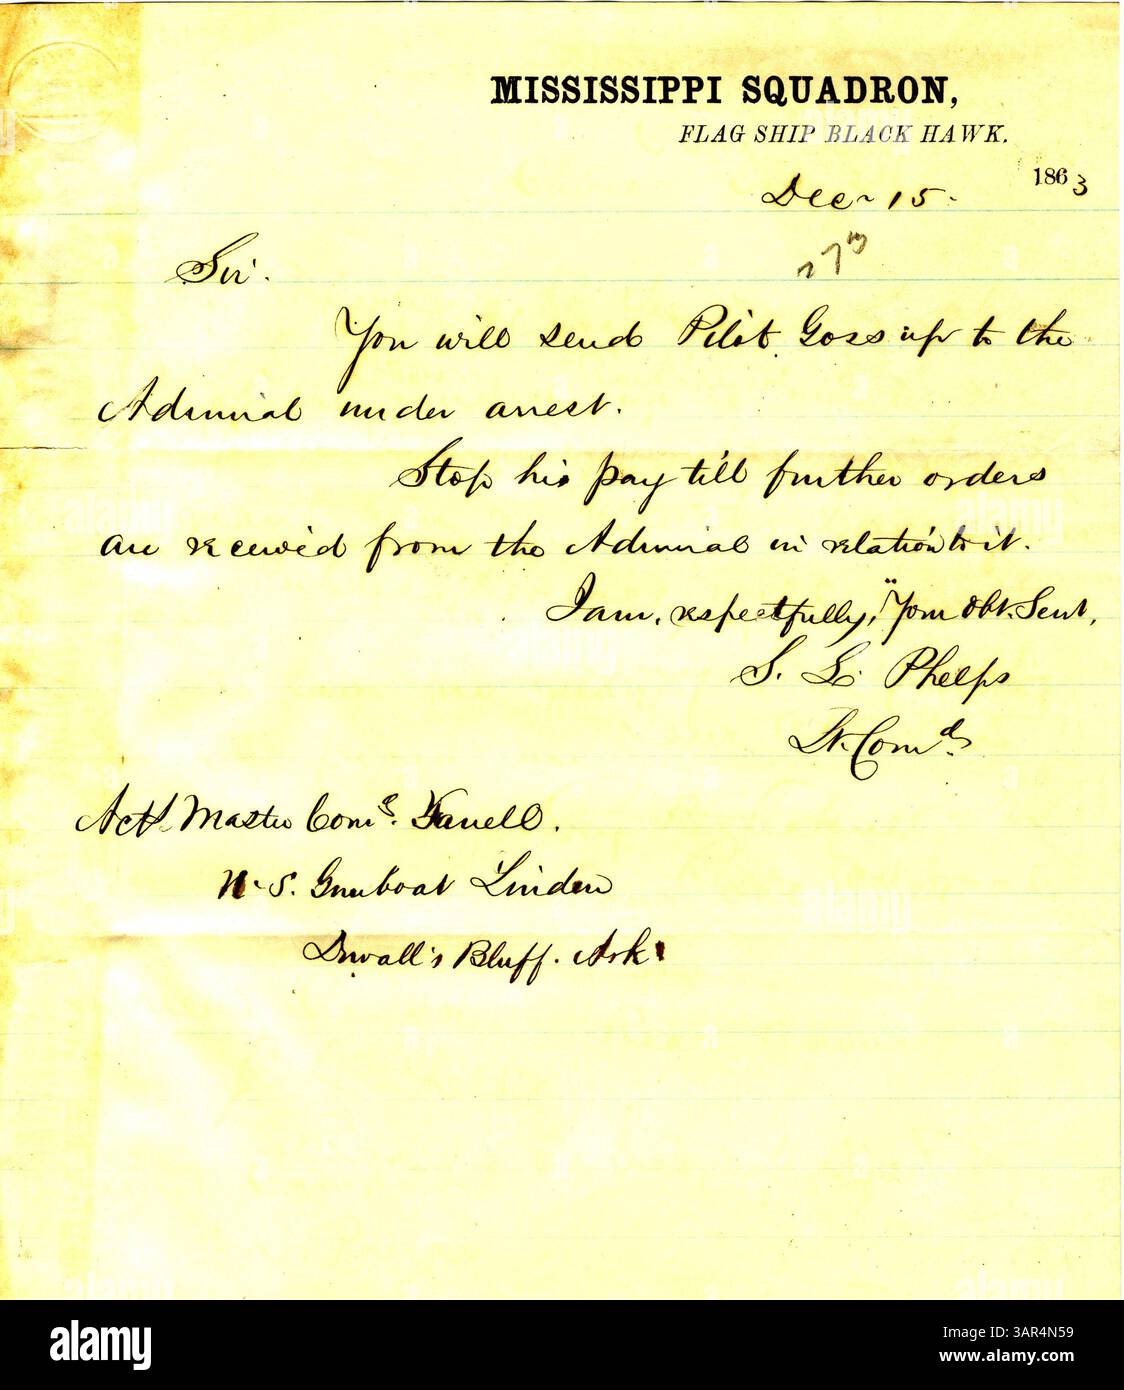 MISSISSIPPI SQUADRON,
FLAG SHIP BLACK HAWK.
Dec 15. 1863
Sir.
You will send Pilot Goss up to the
Admiral under arrest.
Stop his pay till further orders
are received from the Admiral in relation to it.
I am, respectfully, Your Obt. Sevt,
S. L. Phelps
Lt. Comd
Actg Master Comdg. Farrell.
U.S. Gunboat Linden
Duvall's Bluff. Ark.
alamy
Image ID: 3AR4N59
www.alamy.com